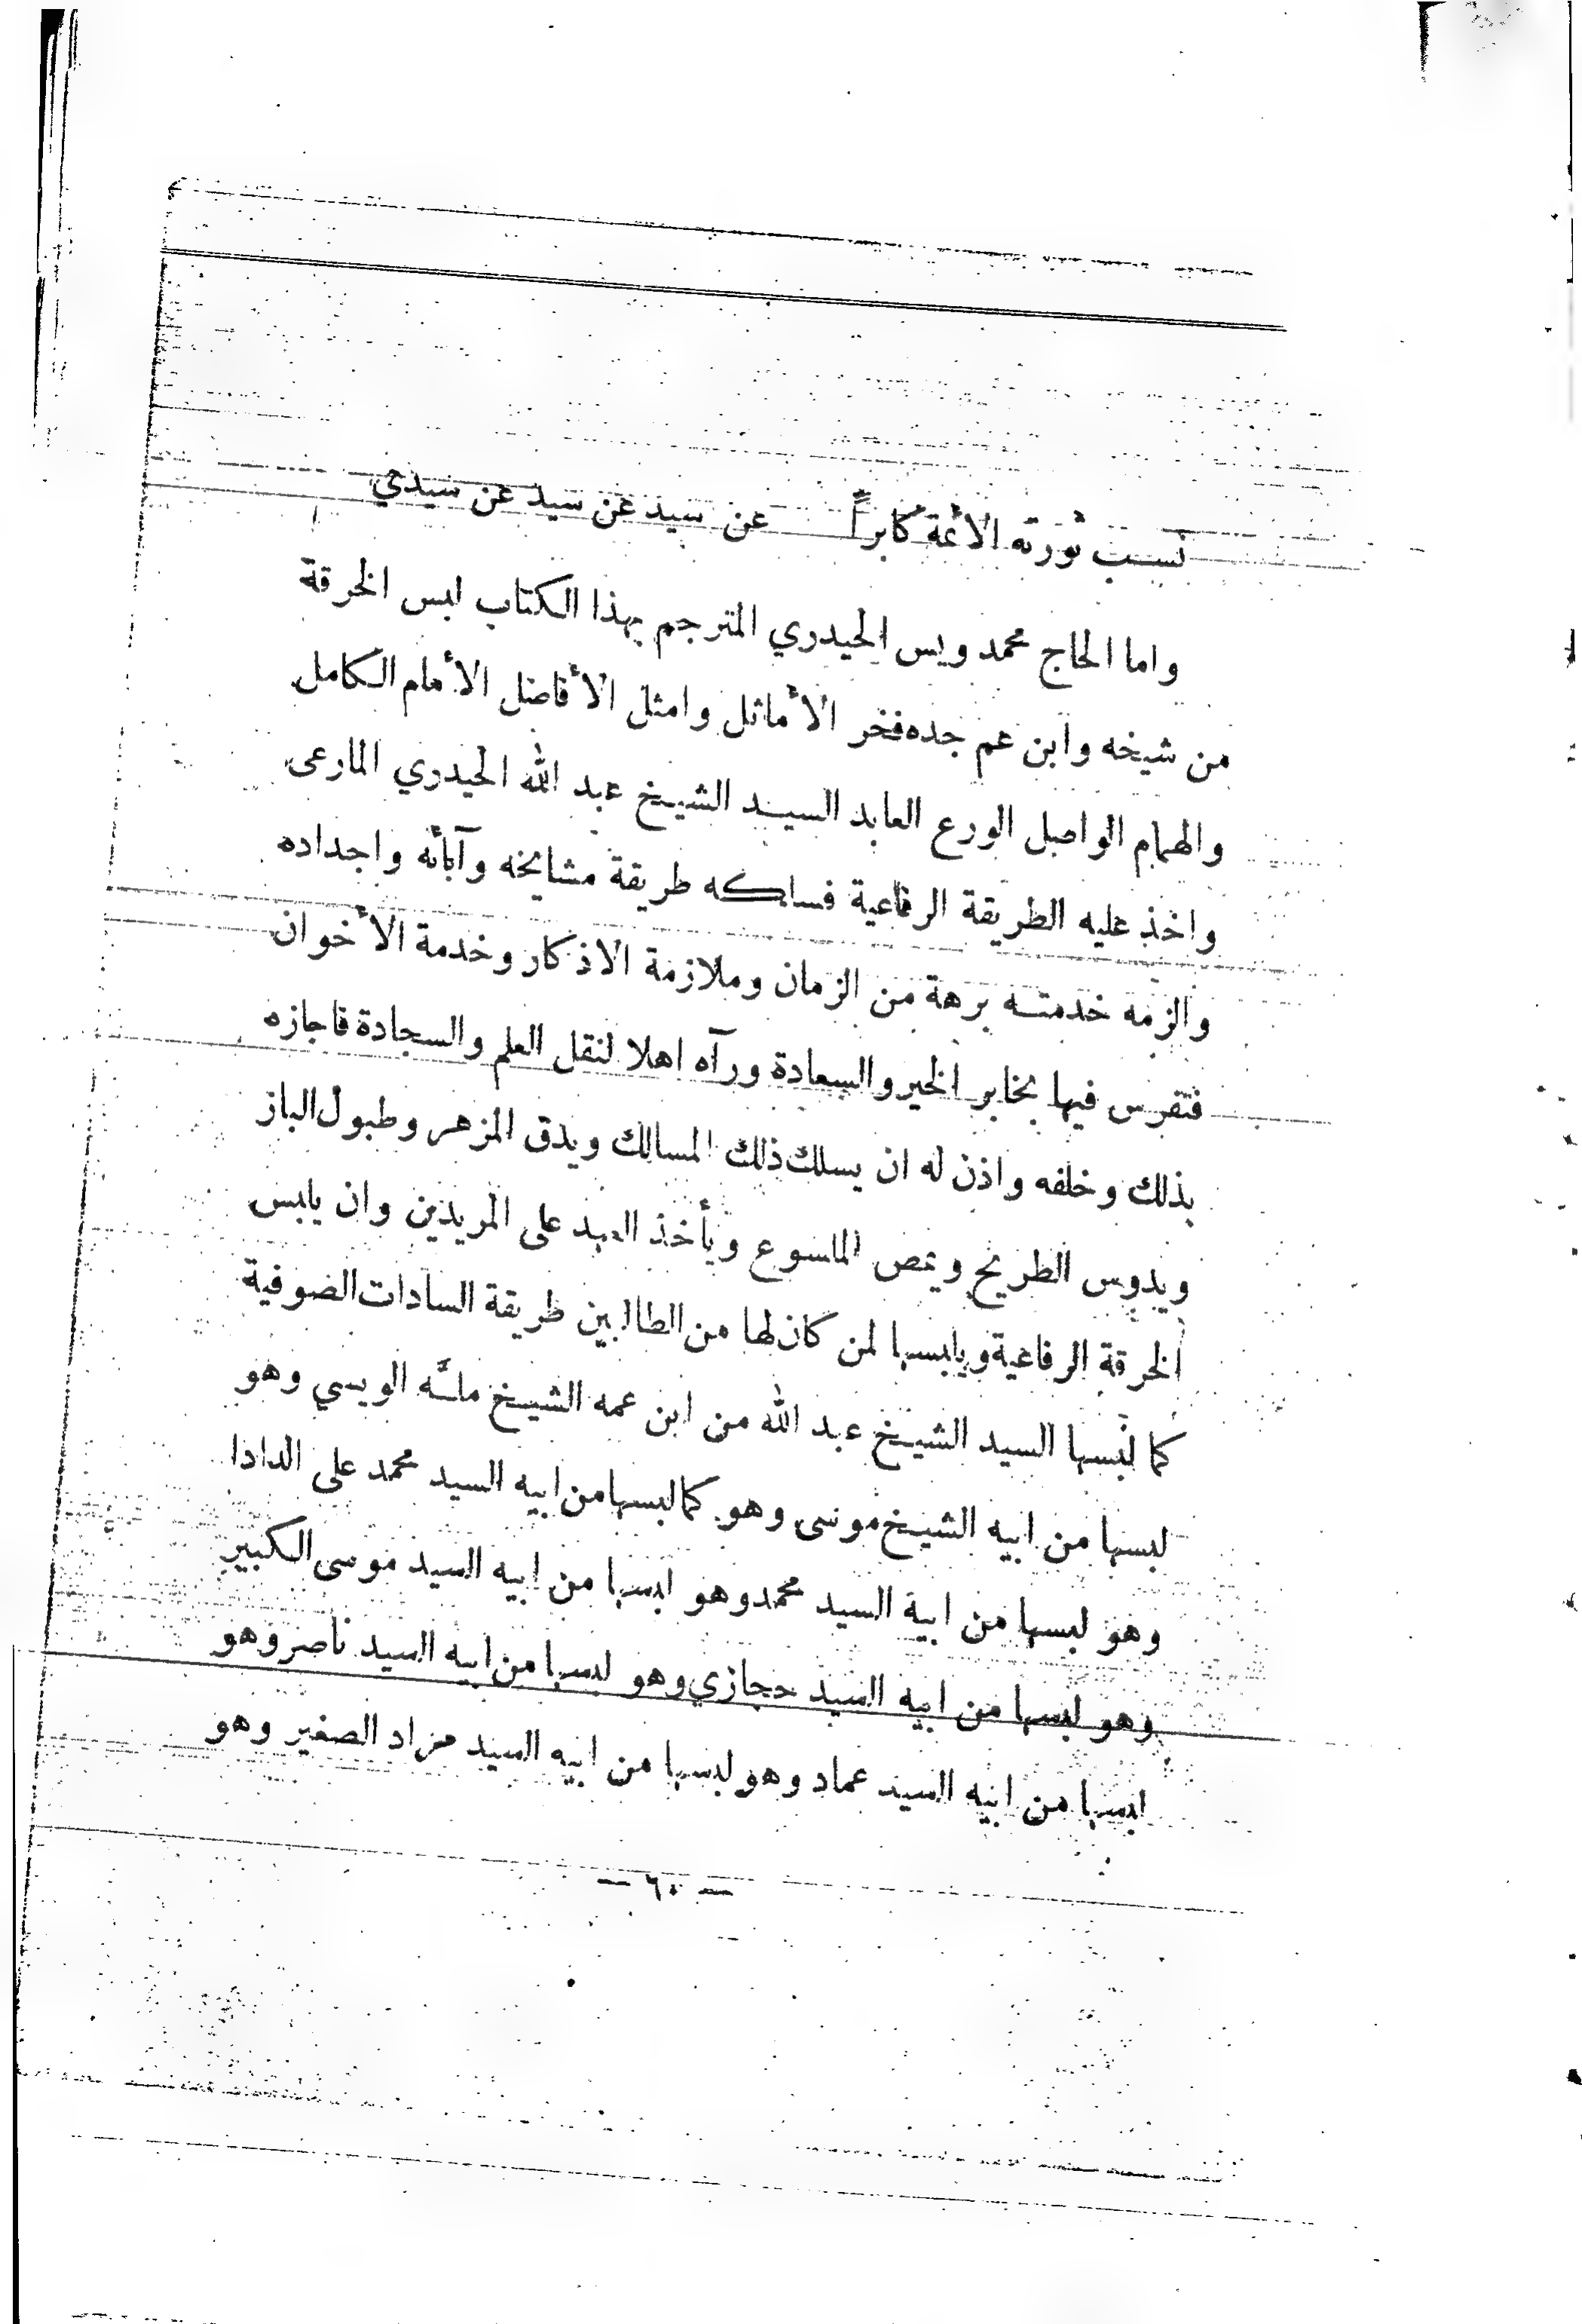 نسب نورته الائمة كابراً عن سيد عن سيد عن سيدي
واما الحاج محمد ويس الحيدري المترجم بهذا الكتاب لبس الخرقة
من شيخه وابن عم جده فخر الأماثل وامثل الأفاضل الأمام الكامل
والهمام الواصل الورع العابد السيد الشيخ عبد الله الحيدري المارعى
واخذ عليه الطريقة الرفاعية فسلكه طريقة مشايخه وآبائه واجداده
والزمه خدمته برهة من الزمان وملازمة الاذكار وخدمة الأخوان
فتفرس فيها بخابر الخير والسعادة ورآه اهلا لنقل العلم والسجادة فاجازه
بذلك وخلفه واذن له ان يسلك ذلك المسالك ويدق المزهر وطبول الباز
ويدوس الطريح ويمص الملسوع ويأخذ العهد على المريدين وان يلبس
الخرقة الرفاعية ويلبسها لمن كان لها من الطالبين طريقة السادات الصوفية
كما لبسها السيد الشيخ عبد الله من ابن عمه الشيخ ملـه الويسي وهو
لبسها من ابيه الشيخ موسى وهو كما لبسها من ابيه السيد محمد على الدادا
وهو لبسها من ابية السيد محمد وهو لبسها من ابيه السيد موسى الكبير
وهو لبسها من ابيه السيد حجازي وهو لبسها من ابيه السيد ناصر وهو
لبسها من ابيه السيد عماد وهو لبسها من ابيه السيد مراد الصغير وهو
— ٦٠ —